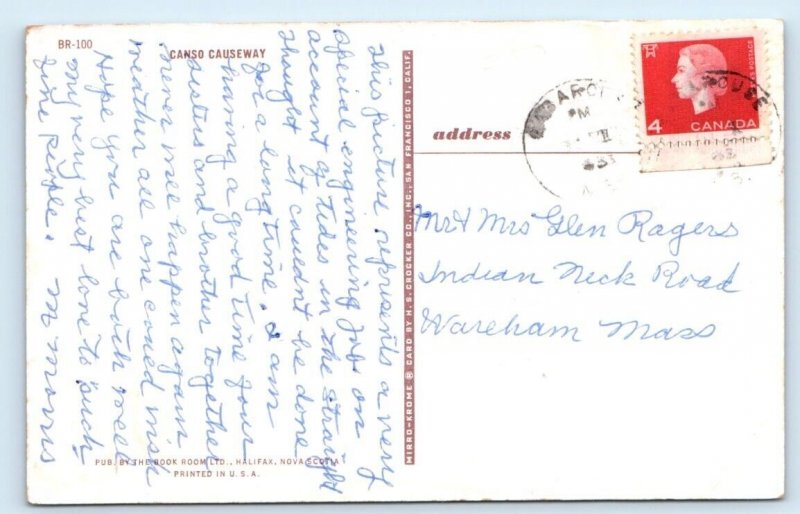 BR-100
CANSO CAUSEWAY
This picture represents a very
special engineering job on
account of tides in the straight
thought it couldn't be done
for a long time. I am
having a good time four
sisters and brother together
never will happen again
weather all one could wish
Hope you are both well
my very best love to such
fine people. M Morris
PUB. BY THE BOOK ROOM LTD., HALIFAX, NOVA SCOTIA
PRINTED IN U.S.A.
MIRRO-KROME ® CARD BY H. S. CROCKER CO., INC., SAN FRANCISCO 1, CALIF.
address
PM
4 CANADA
POSTAGE
Mr & Mrs Glen Ragers
Indian Neck Road
Wareham Mass